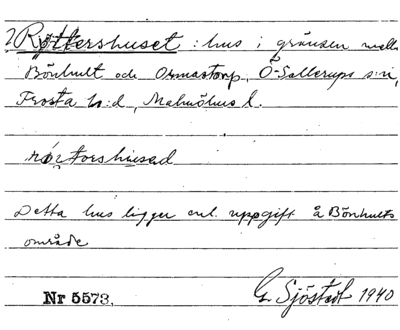 ? Röttershuset : hus i gränsen mell.
Bönhult och Ormastorp, Ö. Sallerups s:n,
Frosta h:d, Malmöhus l.
Detta hus ligger enl. uppgift å Bönhults
område
Nr 5573. G. Sjöstedt 1940